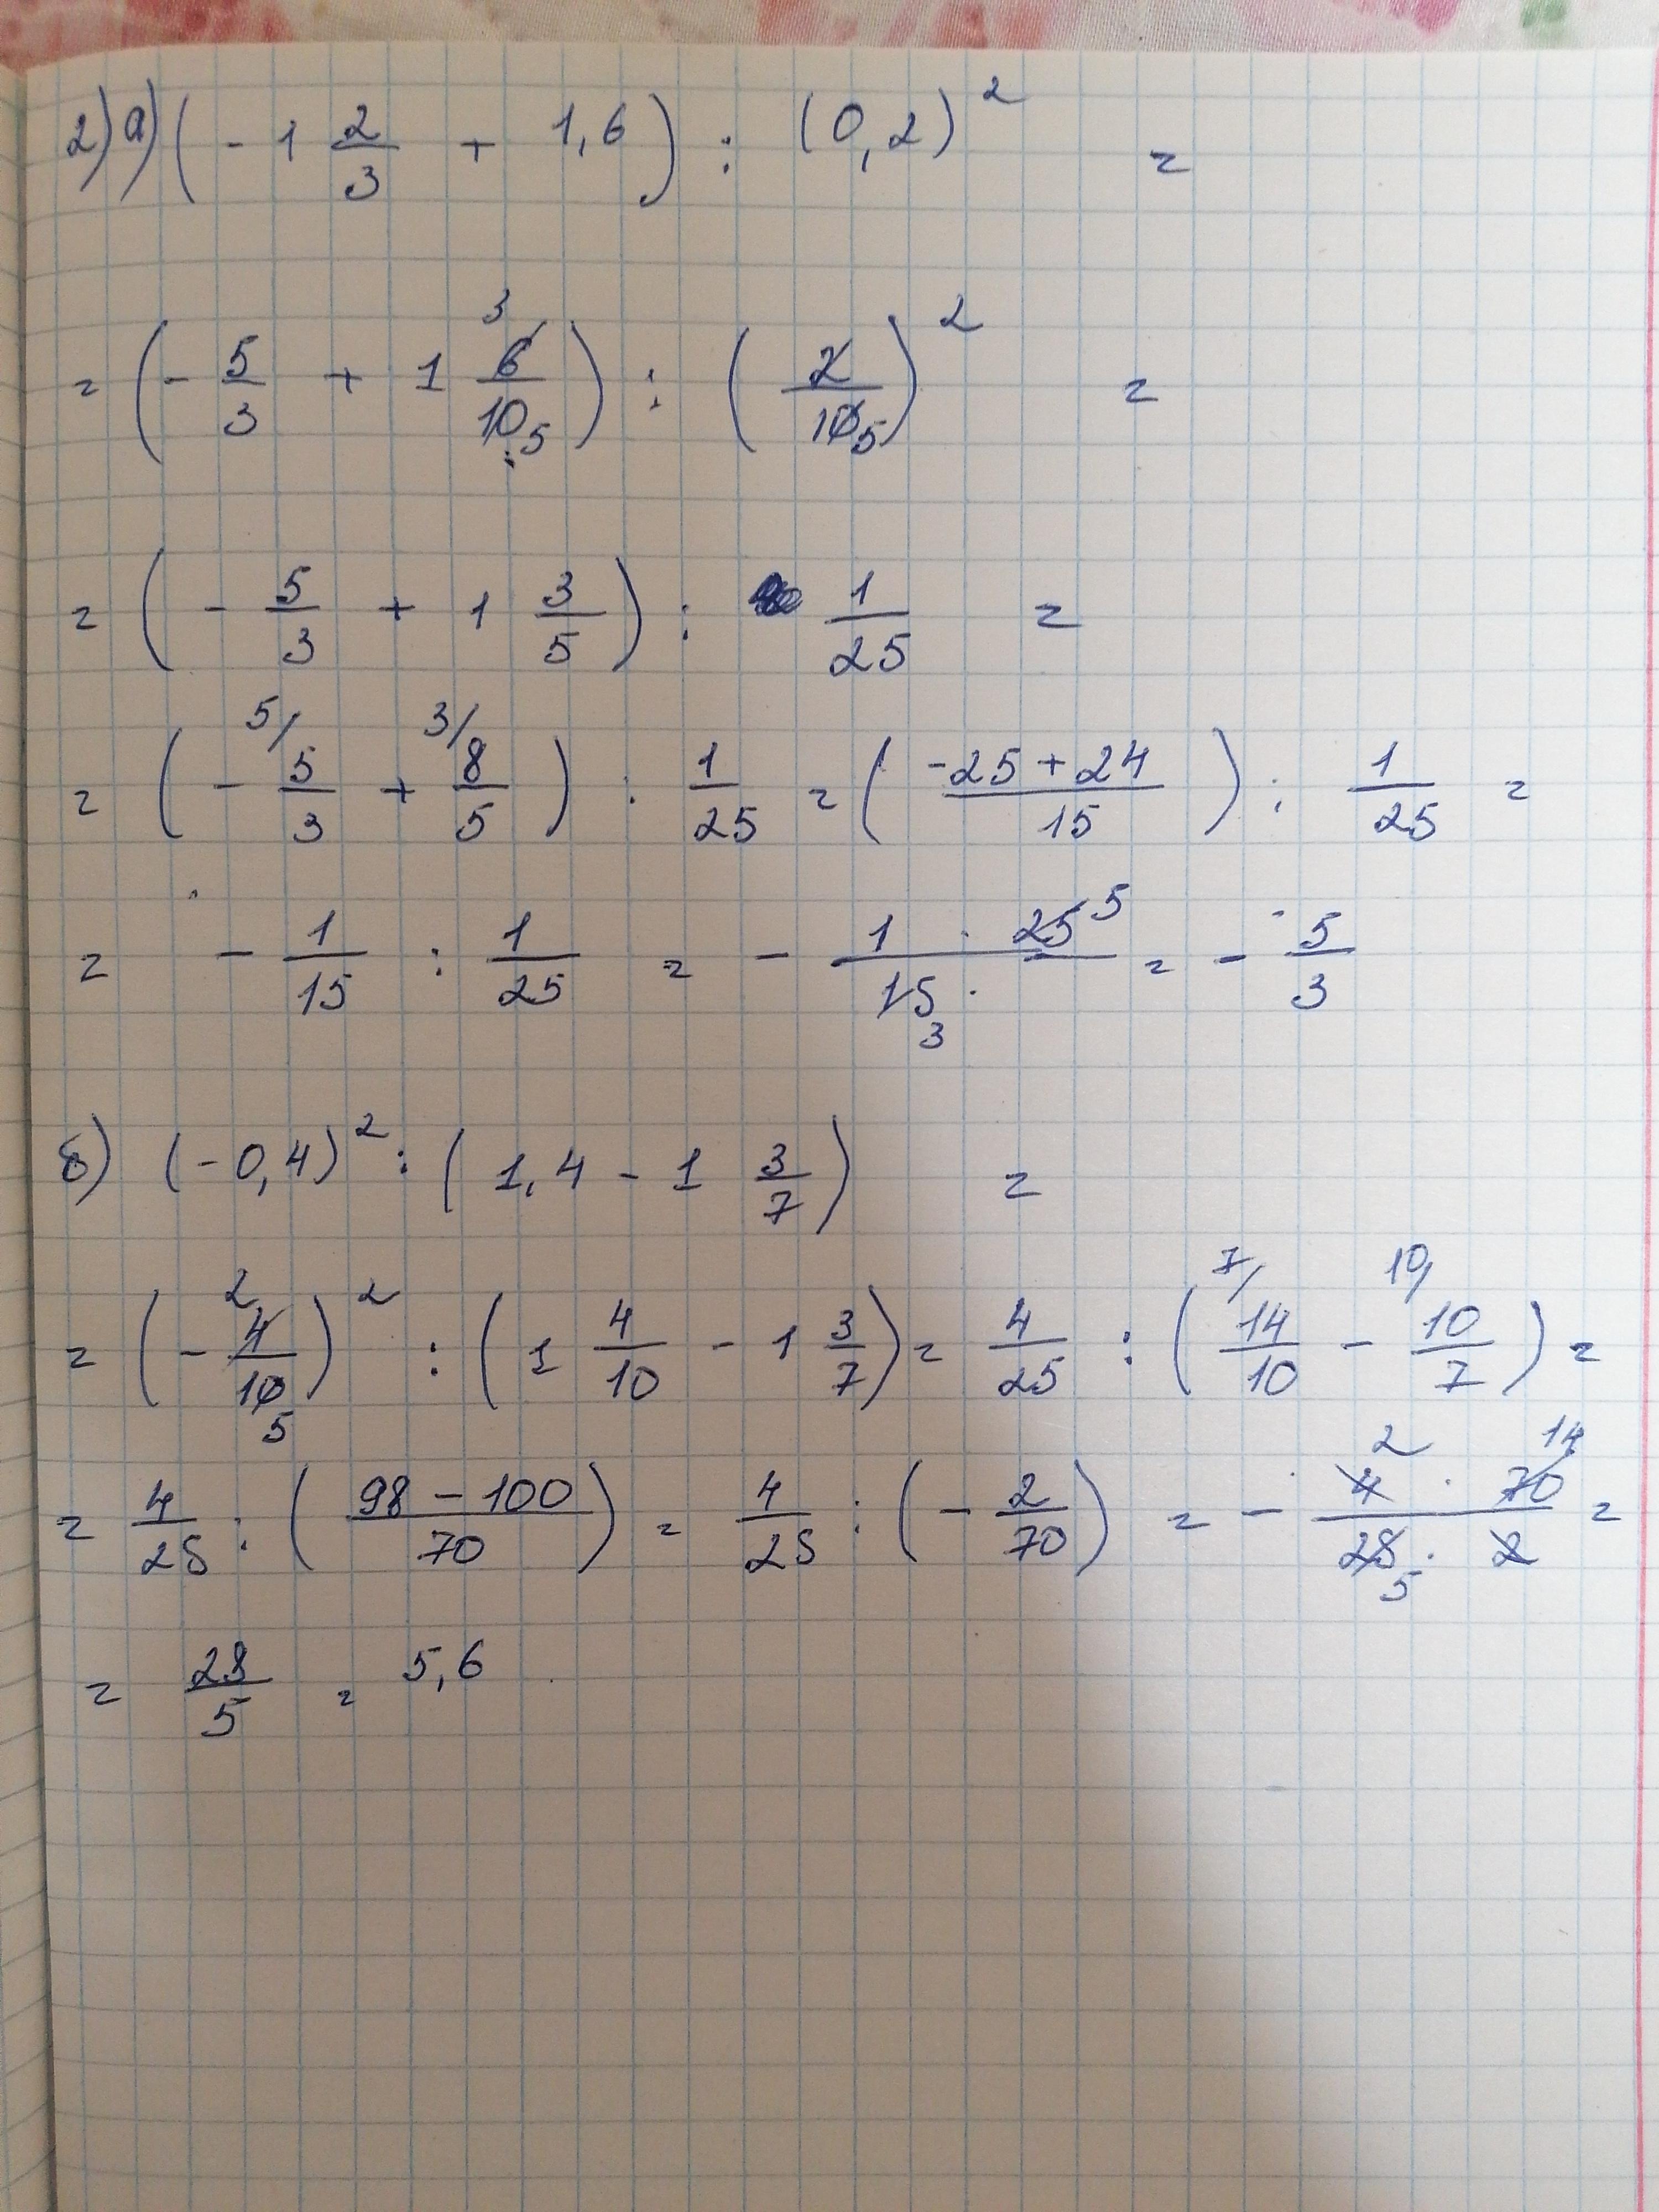 2) а) (- 1 2/3 + 1,6) : (0,2)² =
= (- 5/3 + 1 6/10) : (2/10)² =
= (- 5/3 + 1 3/5) : 1/25 =
= (- 5/3 + 8/5) : 1/25 = (-25 + 24 / 15) : 1/25 =
= - 1/15 : 1/25 = - 1 · 25 / 15 · = - 5/3
б) (- 0,4)² : (1,4 - 1 3/7) =
= (- 4/10)² : (1 4/10 - 1 3/7) = 4/25 : (14/10 - 10/7) =
= 4/25 : (98 - 100 / 70) = 4/25 : (- 2/70) = - 4 · 70 / 25 · 2 =
= 28/5 = 5,6